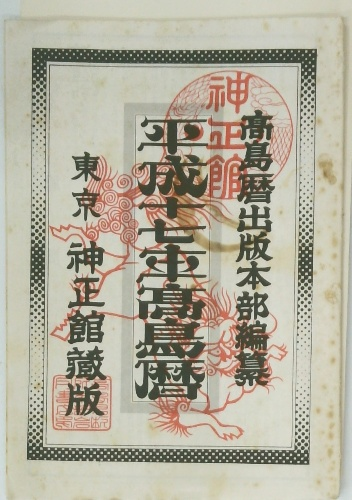 高島暦出版本部編纂
平成十七年高島暦
東京 神正館藏版
神正館